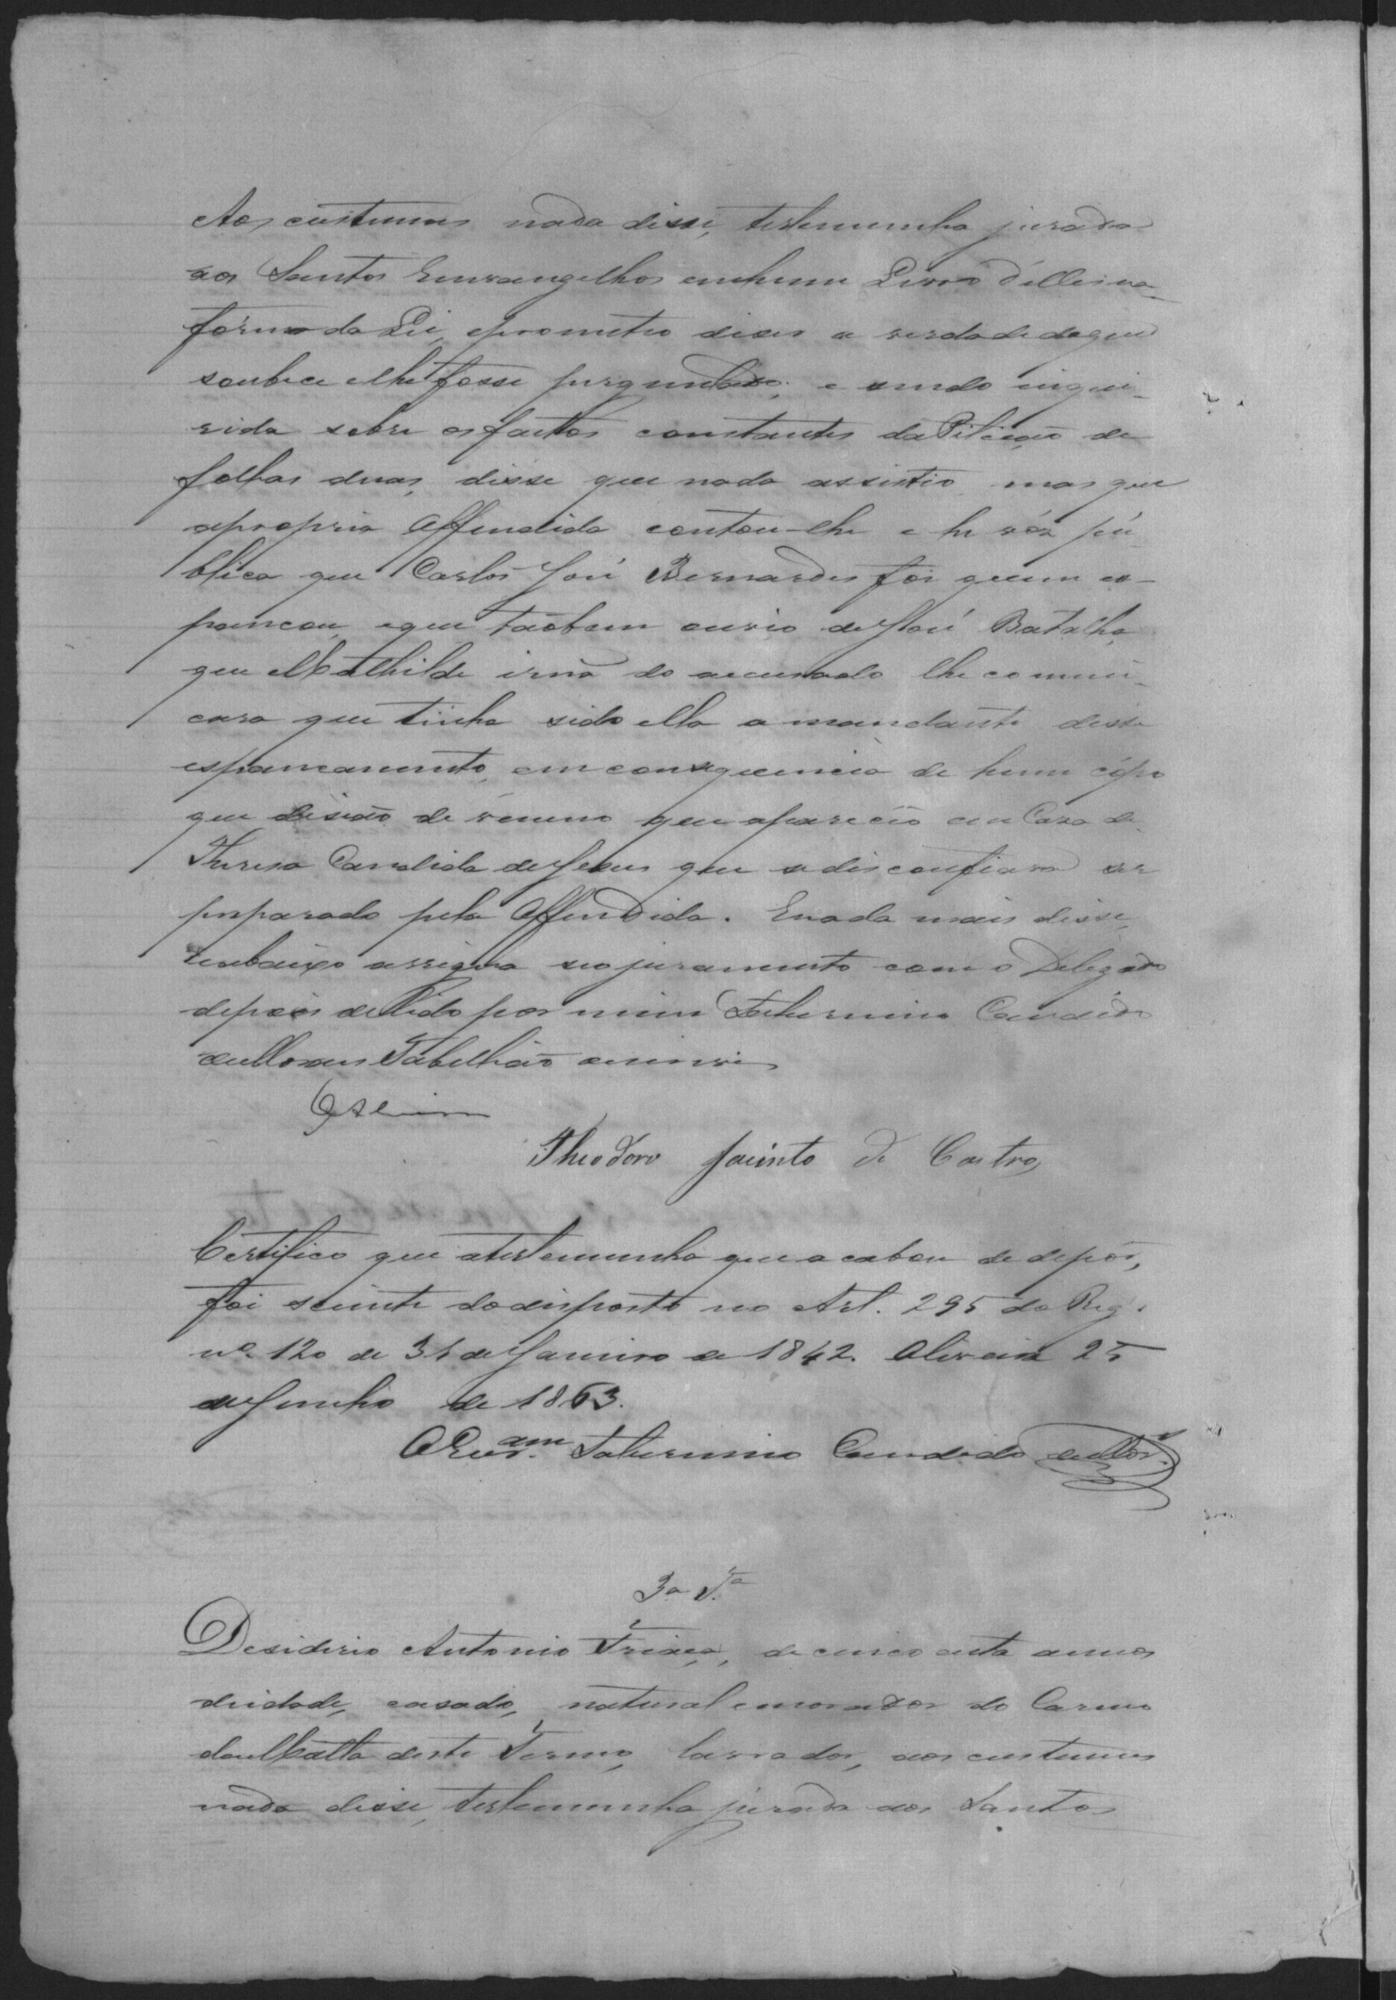 Aos custumes nada disse, testemunha jurada
aos Santos Envangelhos em hum Livro d'elles na
forma da Lei, eprometeo dizer a verdade do que
soubece elhe fosse perguntado; e sendo inqui-
rida sobre os factos constantes da Petição de
folhas duas, disse que nada assistio, mas que
apropria Offendida contou-lhe e he vós pú-
blica que Carlos José Bernardes foi quem es-
pancou, eque taobem ouvio de José Batalha,
que Mathilde irmã do accusado lhe commu-
cara que tinha sido ella a mandante desse
espancamento, em consequencia de hum cópo
que diserão de veneno que aparecêo em Casa de
Thereza Candida de Jesus que se disconfiava ser
preparado pela Offendida. Enada mais disse,
eabaixo assigna seo juramento com o Delegado
depois de lido por mim Saturnino Candido
Tabellião escrevi
Theodoro Jacinto de Castro
Certifico que atestemunha que acabou de depôr,
foi sciente do disposto no Art. 295 do Reg.
nº 120 de 31 de Janeiro de 1842. Oliveira 25
de Junho de 1863.
OEscr.am Saturnino Candido
3a T.a
Desiderio Antonio, de cincoenta annos
deidade, casado, natural emorador do Carmo
da Matta deste Termo, lavrador, aos custumes
nada disse, testemunha jurada aos Santos